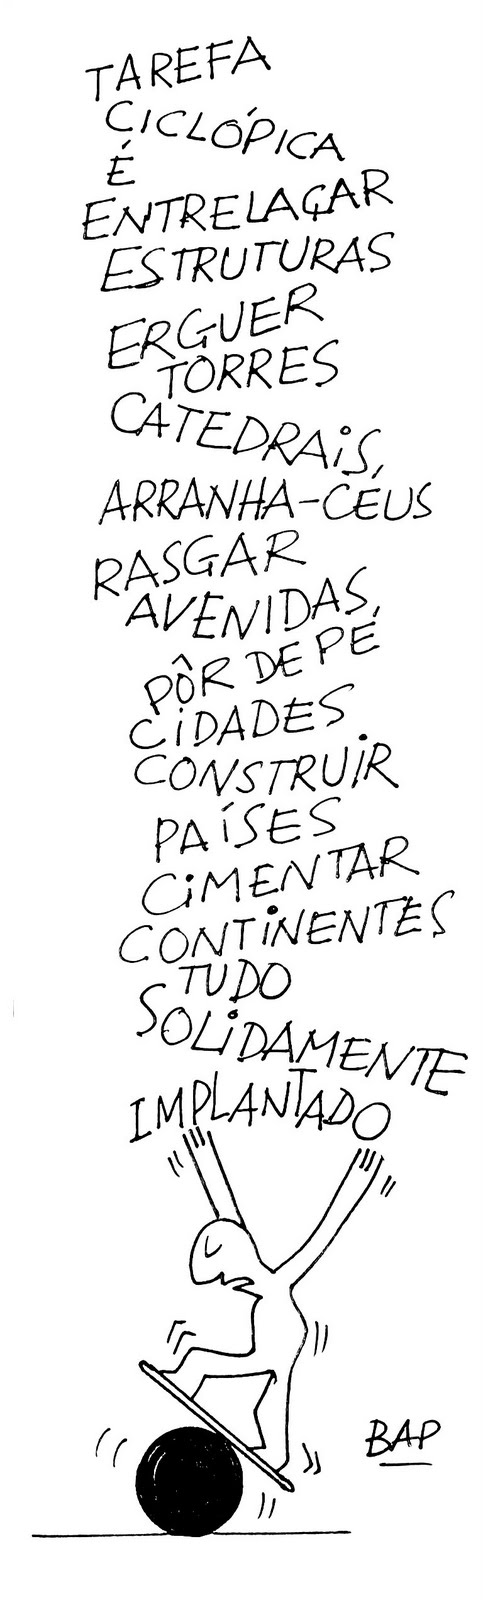 TAREFA
CICLÓPICA
É
ENTRELAÇAR
ESTRUTURAS
ERGUER
TORRES
CATEDRAIS,
ARRANHA-CÉUS
RASGAR
AVENIDAS,
PÔR DE PÉ
CIDADES
CONSTRUIR
PAÍSES
CIMENTAR
CONTINENTES
TUDO
SOLIDAMENTE
IMPLANTADO
BAP